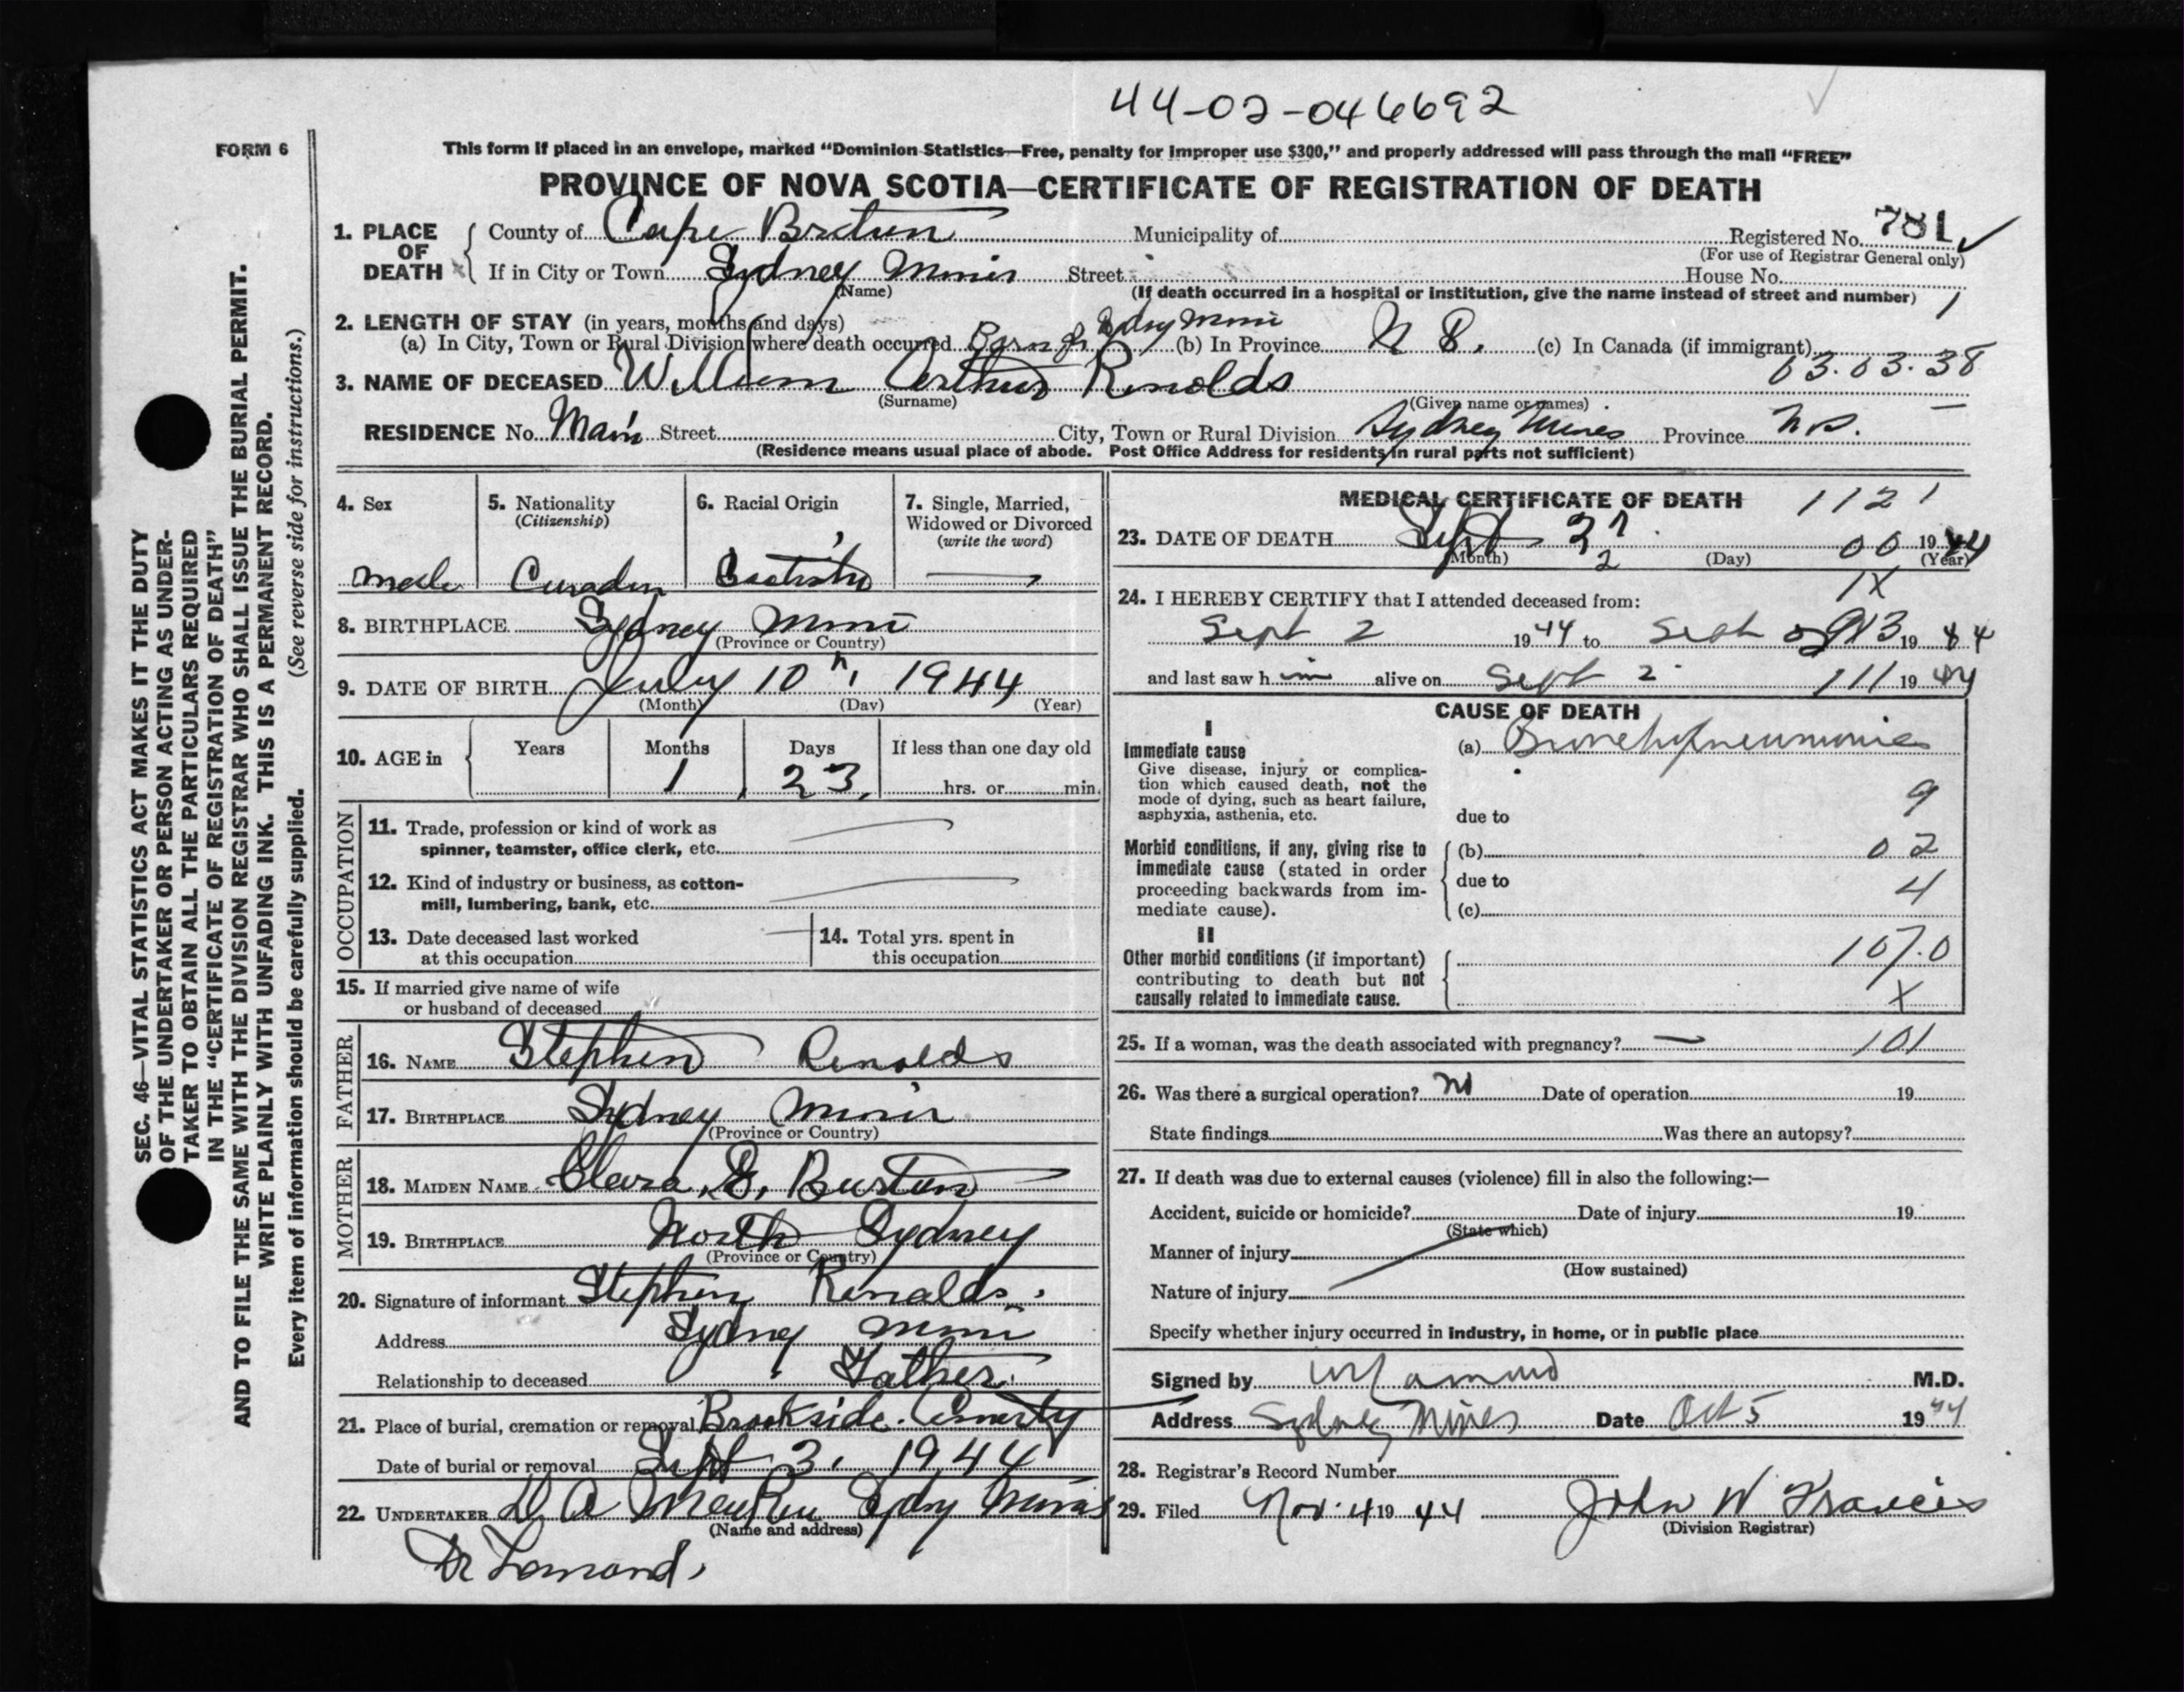 44-02-046692
FORM 6
This form if placed in an envelope, marked “Dominion Statistics—Free, penalty for improper use $300,” and properly addressed will pass through the mail “FREE”
PROVINCE OF NOVA SCOTIA—CERTIFICATE OF REGISTRATION OF DEATH
1. PLACE OF DEATH County of Cape Breton Municipality of Registered No. 781
(For use of Registrar General only)
If in City or Town Sydney Mines Street House No.
(Name) (If death occurred in a hospital or institution, give the name instead of street and number) 1
2. LENGTH OF STAY (in years, months and days)
(a) In City, Town or Rural Division where death occurred Born in Sdny Mines (b) In Province (c) In Canada (if immigrant)
63.03.38
3. NAME OF DECEASED William Arthur Renolds
(Surname) (Given name or names)
RESIDENCE No. Main Street City, Town or Rural Division Sydney Mines Province N.S.
(Residence means usual place of abode. Post Office Address for residents in rural parts not sufficient)
4. Sex
male
5. Nationality
(Citizenship)
6. Racial Origin
7. Single, Married,
Widowed or Divorced
(write the word)
8. BIRTHPLACE Sydney Mines
(Province or Country)
9. DATE OF BIRTH July 10th, 1944
(Month) (Day) (Year)
10. AGE in Years Months Days If less than one day old
1 23 hrs. or min.
OCCUPATION
11. Trade, profession or kind of work as
spinner, teamster, office clerk, etc.
12. Kind of industry or business, as cotton-
mill, lumbering, bank, etc.
13. Date deceased last worked
at this occupation
14. Total yrs. spent in
this occupation
15. If married give name of wife
or husband of deceased
FATHER
16. NAME Stephen Renolds
17. BIRTHPLACE Sydney Mines
(Province or Country)
MOTHER
18. MAIDEN NAME Clara. E. Burton
19. BIRTHPLACE North Sydney
(Province or Country)
20. Signature of informant Stephen Renalds.
Address Sydney Mines
Relationship to deceased Father.
21. Place of burial, cremation or removal Brookside.
Date of burial or removal Sept 3, 1944
22. UNDERTAKER D. A. Sdny Mines
(Name and address)
Dr Lamond.
MEDICAL CERTIFICATE OF DEATH 1121
23. DATE OF DEATH Sept 2 00 1944
(Month) (Day) (Year)
1X
24. I HEREBY CERTIFY that I attended deceased from:
Sept 2 1944 to Sept 1944
and last saw h im alive on Sept 2 111 1944
CAUSE OF DEATH
I
Immediate cause
Give disease, injury or complica-
tion which caused death, not the
mode of dying, such as heart failure,
asphyxia, asthenia, etc.
(a) Bronchopneumonia
9
due to
Morbid conditions, if any, giving rise to
immediate cause (stated in order
proceeding backwards from im-
mediate cause).
(b) 02
due to 4
(c)
II
Other morbid conditions (if important)
contributing to death but not
causally related to immediate cause.
107.0
X
25. If a woman, was the death associated with pregnancy? 101
26. Was there a surgical operation? no Date of operation 19
State findings Was there an autopsy?
27. If death was due to external causes (violence) fill in also the following:—
Accident, suicide or homicide? Date of injury 19
(State which)
Manner of injury
(How sustained)
Nature of injury
Specify whether injury occurred in industry, in home, or in public place
Signed by Lamond M.D.
Address Sydney Mines Date Oct 5 1944
28. Registrar's Record Number
29. Filed Nov. 4 1944 John W Francis
(Division Registrar)
SEC. 46—VITAL STATISTICS ACT MAKES IT THE DUTY
OF THE UNDERTAKER OR PERSON ACTING AS UNDER-
TAKER TO OBTAIN ALL THE PARTICULARS REQUIRED
IN THE “CERTIFICATE OF REGISTRATION OF DEATH”
AND TO FILE THE SAME WITH THE DIVISION REGISTRAR WHO SHALL ISSUE THE BURIAL PERMIT.
WRITE PLAINLY WITH UNFADING INK. THIS IS A PERMANENT RECORD.
Every item of information should be carefully supplied. (See reverse side for instructions.)